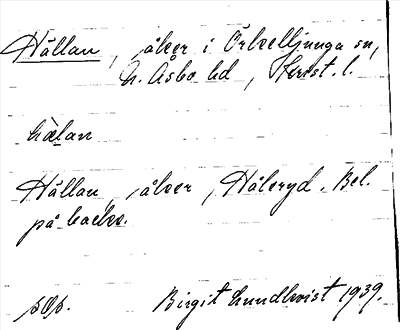 Hällan, åker i Örkelljunga sn,
N. Åsbo hd, Krist. l.
hǽlan
Hällan, åker, Håleryd. Bel.
på backe.
Birgit Lundkvist 1939.